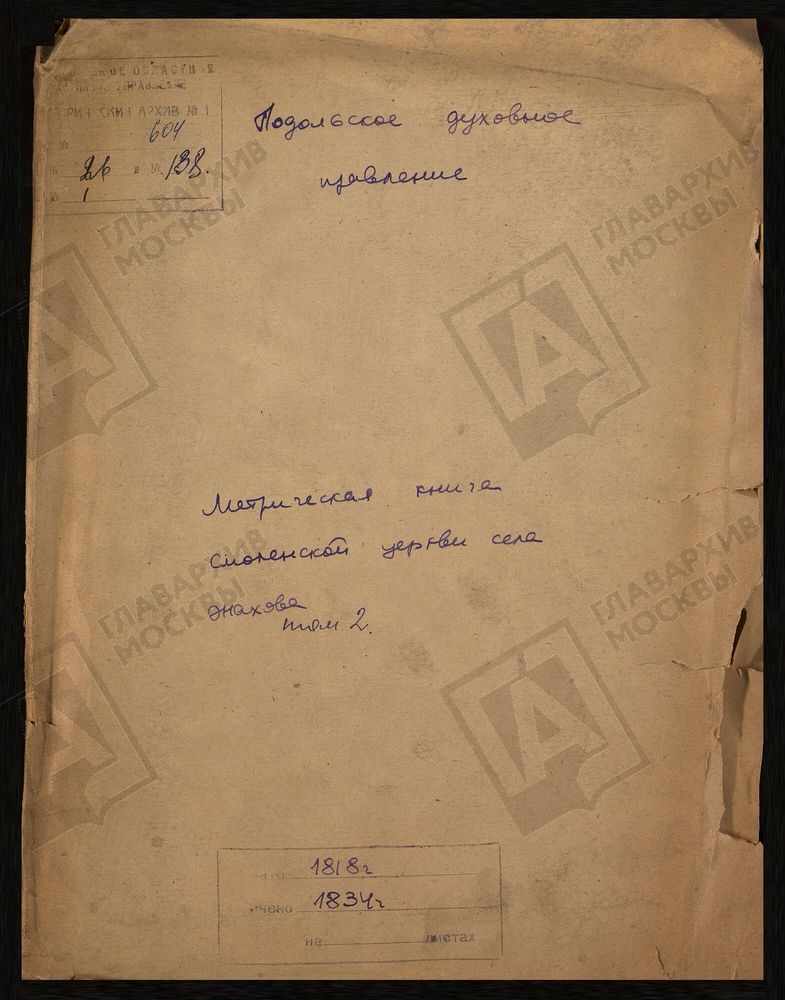 ОБЛАСТН
УПРАВЛЕНИЕ
АРХИВ № 1
№ 604
26 и № 138.
№ 1
Подольское духовное
правление
ГЛАВАРХИВ
МОСКВЫ
ГЛАВАРХИВ
МОСКВЫ
Метрическая книга
Смоленской церкви села
ГЛАВАРХИВ
МОСКВЫ
ГЛАВАРХИВ
МОСКВЫ
том 2.
1818 г
1834 г
на листах